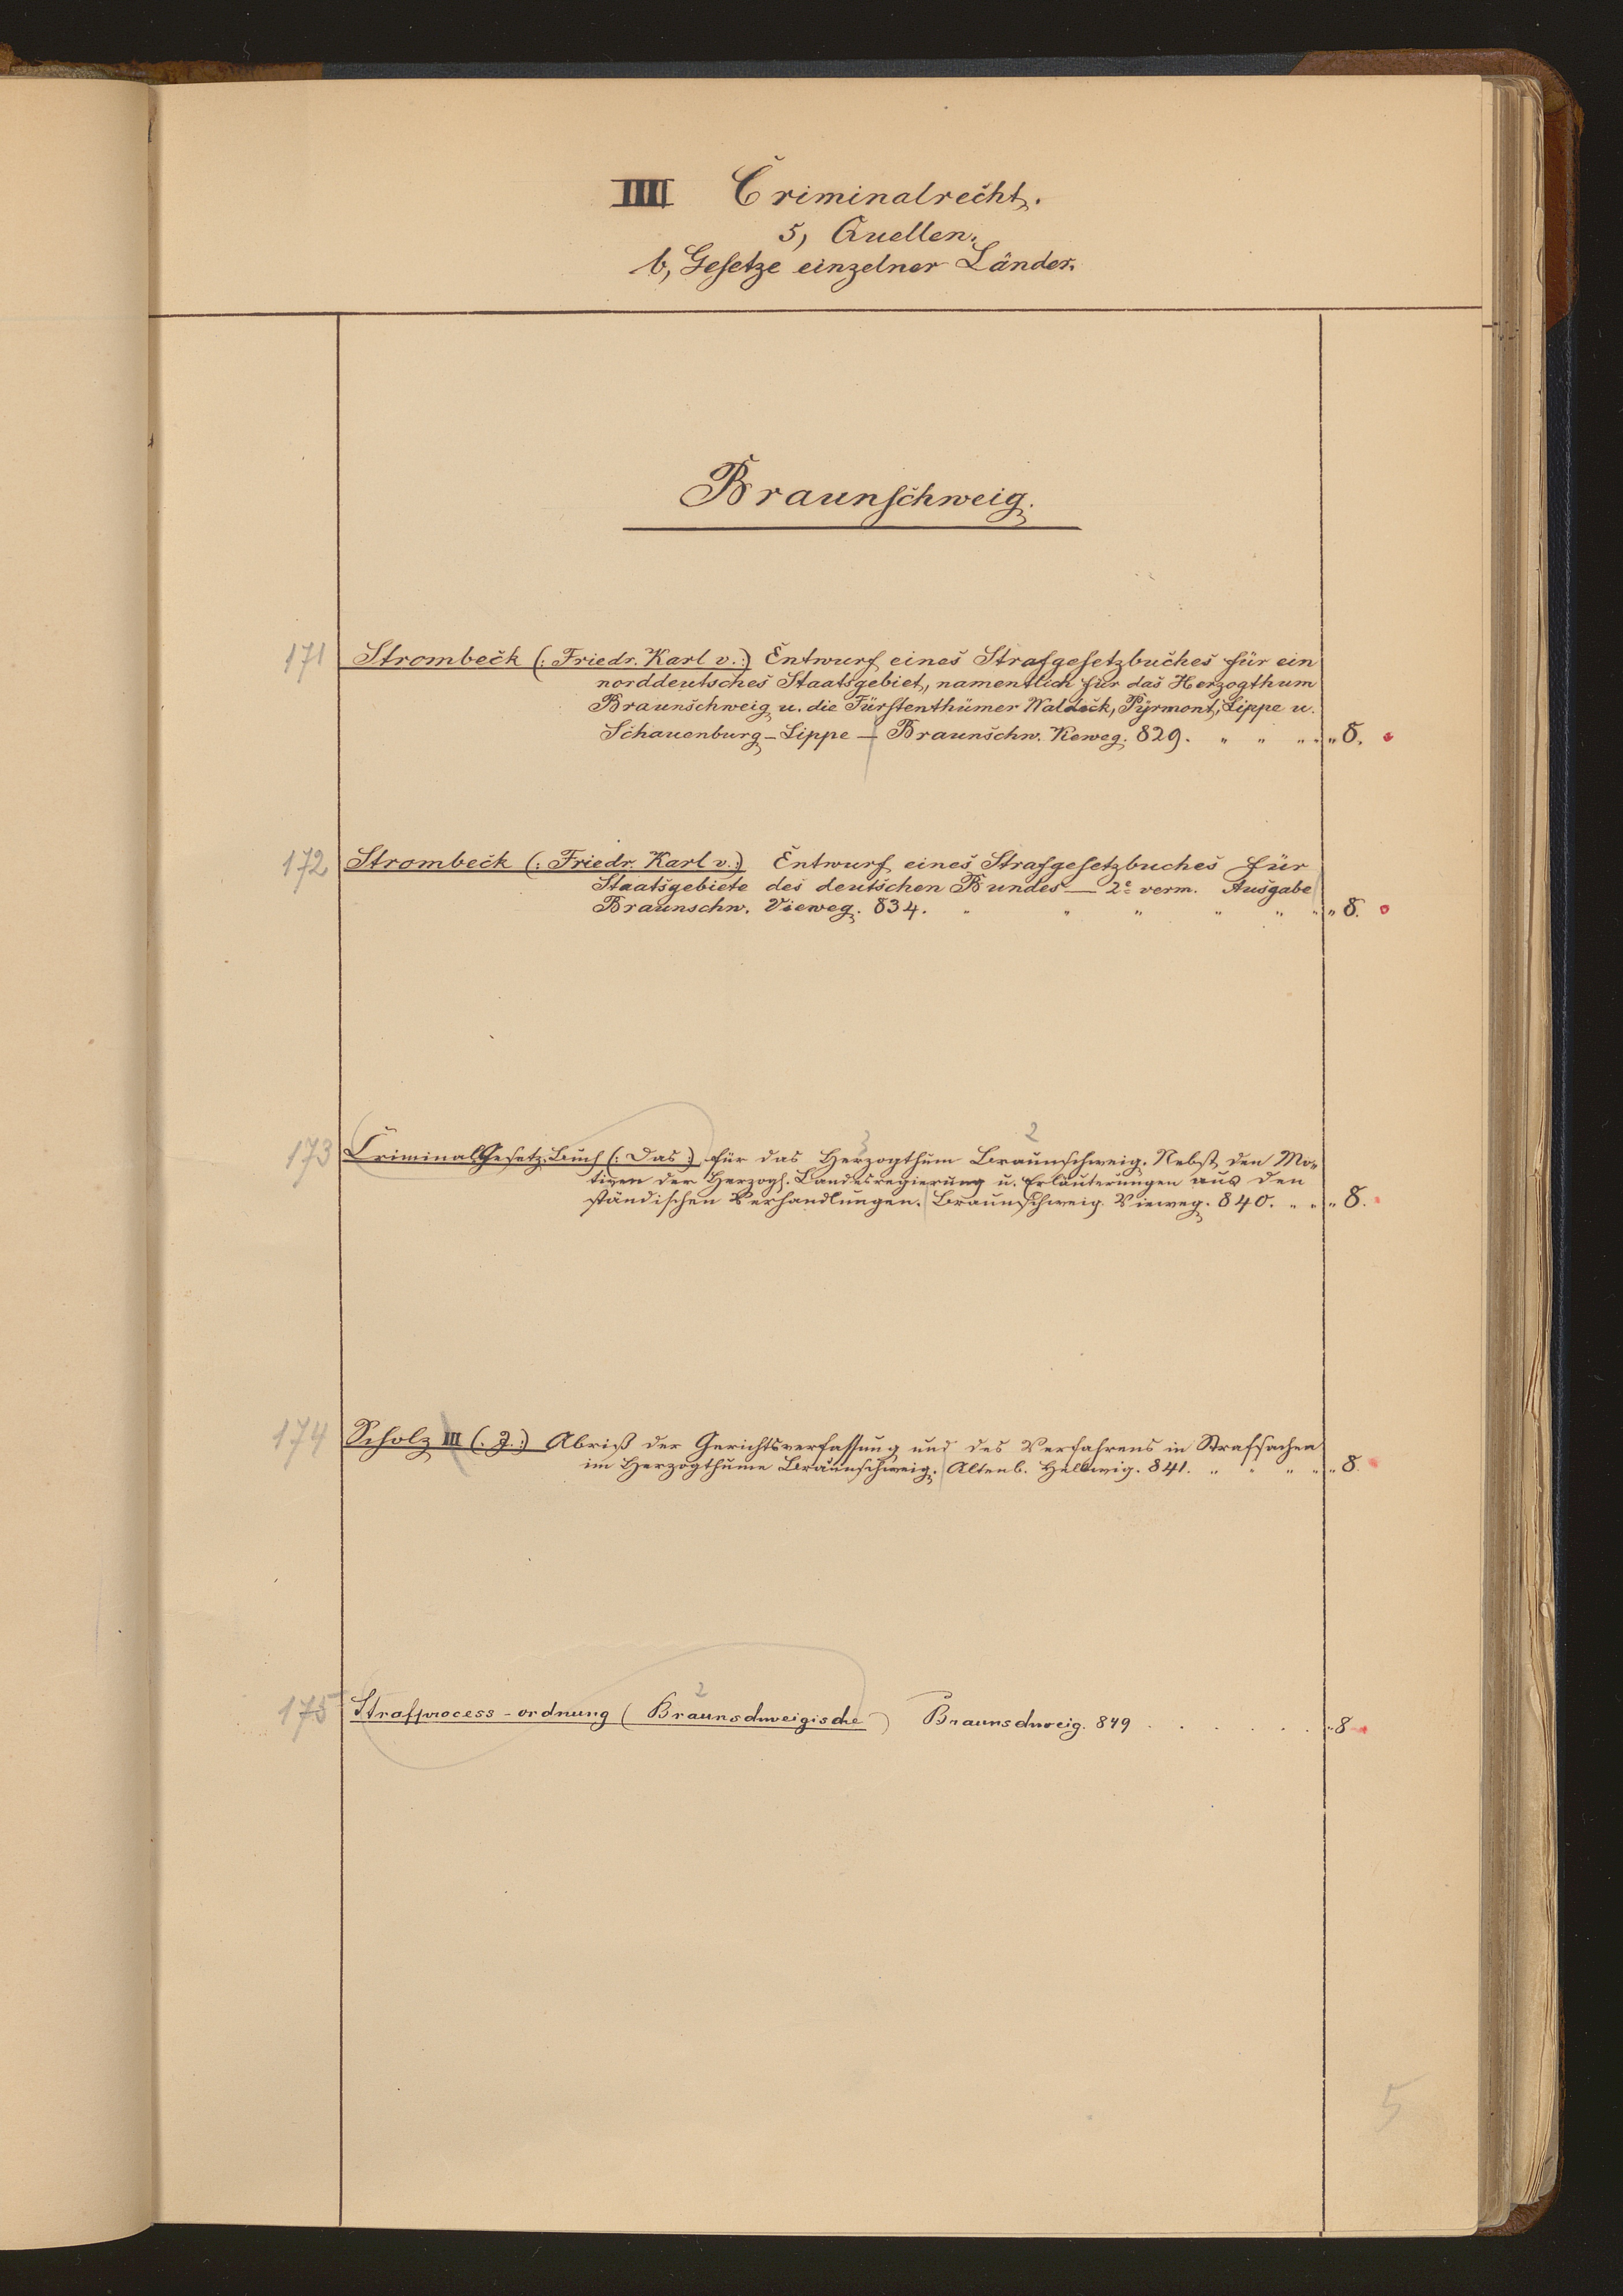 IIII Criminalrecht.
5, Quellen.
b, Gesetze einzelner Länder.
Braunschweig.
171 Strombeck (: Friedr. Karl v. :) Entwurf eines Strafgesetzbuches für ein
norddeutsches Staatsgebiet, namentlich für das Herzogthum
Braunschweig u. die Fürstenthümer Waldeck, Pyrmont, Lippe u.
Schauenburg-Lippe — Braunschw. Vieweg. 829. " " " " " 8.
172 Strombeck (: Friedr. Karl v. :) Entwurf eines Strafgesetzbuches für
Staatsgebiete des deutschen Bundes — 2e verm. Ausgabe
Braunschw. Vieweg. 834. " " " " " " " 8.
2
173 CriminalGesetz-Buch (: Das :) für das Herzogthum Braunschweig. Nebst den Mo-
tiven der Herzogl. Landesregierung u. Erläuterungen aus den
ständischen Verhandlungen. Braunschweig. Vieweg. 840. " " " 8.
174 Scholz III (: J. :) Abriß der Gerichtsverfassung und des Verfahrens in Strafsachen
im Herzogthume Braunschweig. Altenb. Hellwig. 841. " " " " " 8.
2
175 Strafprocess-ordnung (Braunschweigische) Braunschweig. 849 . . . . . . . " 8
5